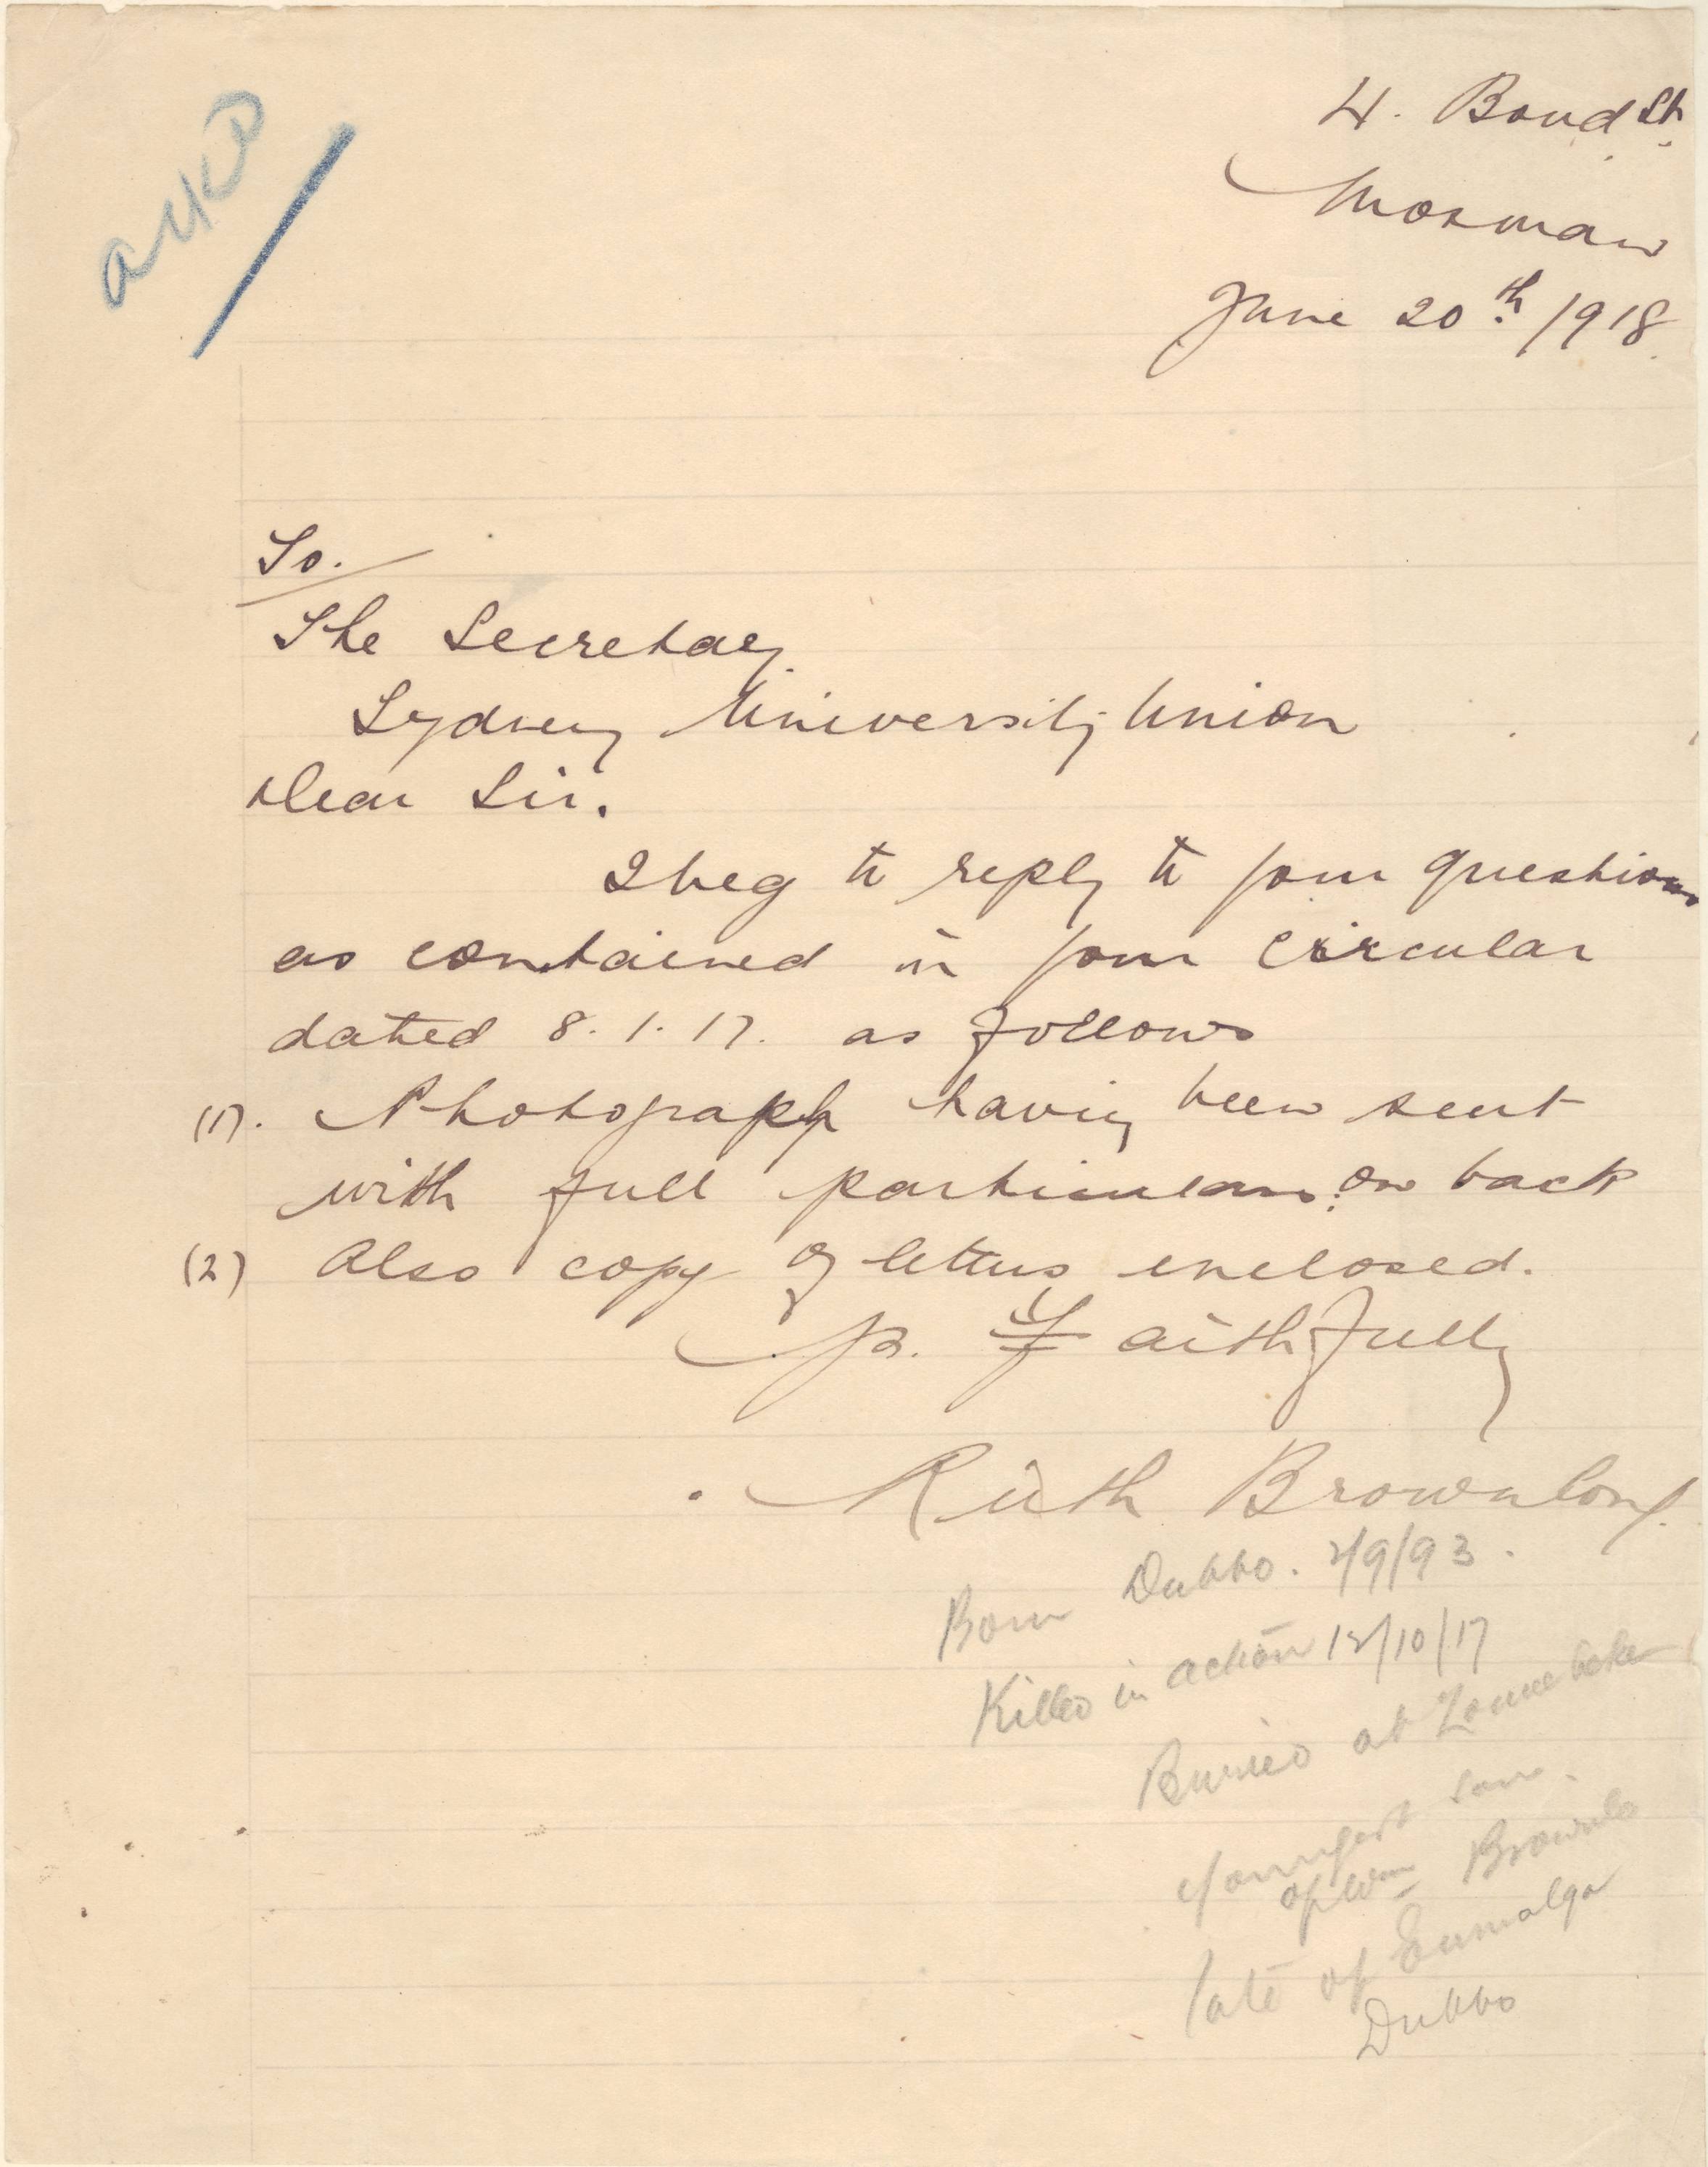 ackd
4. Bond St.
Mosman
June 20th. 1918.
To.
The Secretary
Sydney University Union
Dear Sir.
I beg to reply to your questions
as contained in your circular
dated 8.1.17. as follows
(1). Photograph having been sent
with full particulars on back
(2) Also copy of letters enclosed.
Yrs. Faithfully
Ruth Brownlow.
Born Dubbo. 2/9/93.
Killed in action 12/10/17
Buried at Zonnebeke
Youngest son.
of Wm Brownlo
late of Eumalga
Dubbo